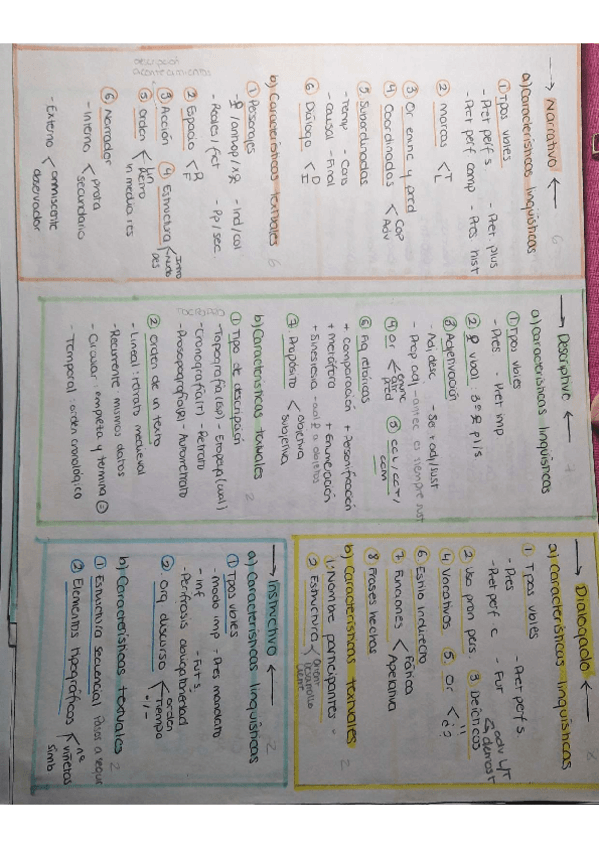 → Narrativo ←
6
a) Características lingüísticas
① Tpos vbles
- Pret perf s - Pret plus
- Pret perf comp - Pres hist
② marcas < T
L
③ Or enunc y pred
④ Coordinadas < Cop
Adv
⑤ Subordinadas
- Temp - Caus - Final
⑥ Diálogo < D
I
b) Características textuales 6
① Personajes
- Ind/col
- Reales/fict - Pp/sec
② Espacio < R
F
descripción
acontecimientos
③ Acción ④ Estructura < intro
nudo
des
⑤ Orden < Retro
in media res
⑥ Narrador
- Interno < prota
secundario
- Externo < omnisciente
observador
→ Descriptivo ←
a) Características lingüísticas
① Tpos vbles
- Pres - Pret imp
② vbal 3ª p/s
③ Adjetivación
- Adj desc - Ser + adj/sust
- Prep adj - antec es siempre sust
④ Or < enunc
atr
pred
⑤ CCL/CCT/
CCM
⑥ Fig retóricas
+ comparación + Personificación
+ metáfora + Enumeración
+ Sinestesia
⑦ Propósito < objetiva
subjetiva
b) Características textuales 2
① Tipo de descripción
- Topografía - Etopeya
- Cronografía (T) - Retrato
- Prosopografía - Autorretrato
② Orden de un texto
- Lineal: retrato medieval
- Recurrente mismos datos
- Circular: empresa y termina =
- Temporal: orden cronológico
→ Dialogado ←
8
a) Características lingüísticas
① Tpos vbles
- Pres - Pret perf s
- Pret perf c - Fut
② Uso pron pers. ③ Deícticos
adv L/T
demost
④ Vocativos ⑤ Or < ¡!
¿?
⑥ Estilo indirecto
⑦ Funciones < Fática
Apelativa
⑧ Frases hechas
b) Características textuales 2
① Nombre participantes
② Estructura
desarrollo
cierre
→ Instructivo ←
2
a) Características lingüísticas
① Tpos vbles
- modo imp - Pres mandato
- Inf - Fut s
- Perífrasis obligatoriedad
② Org discurso < orden
Tiempo
b) Características textuales 2
① Estructura secuencial Pasos a seguir
② Elementos tipográficos < nº
viñetas
simb